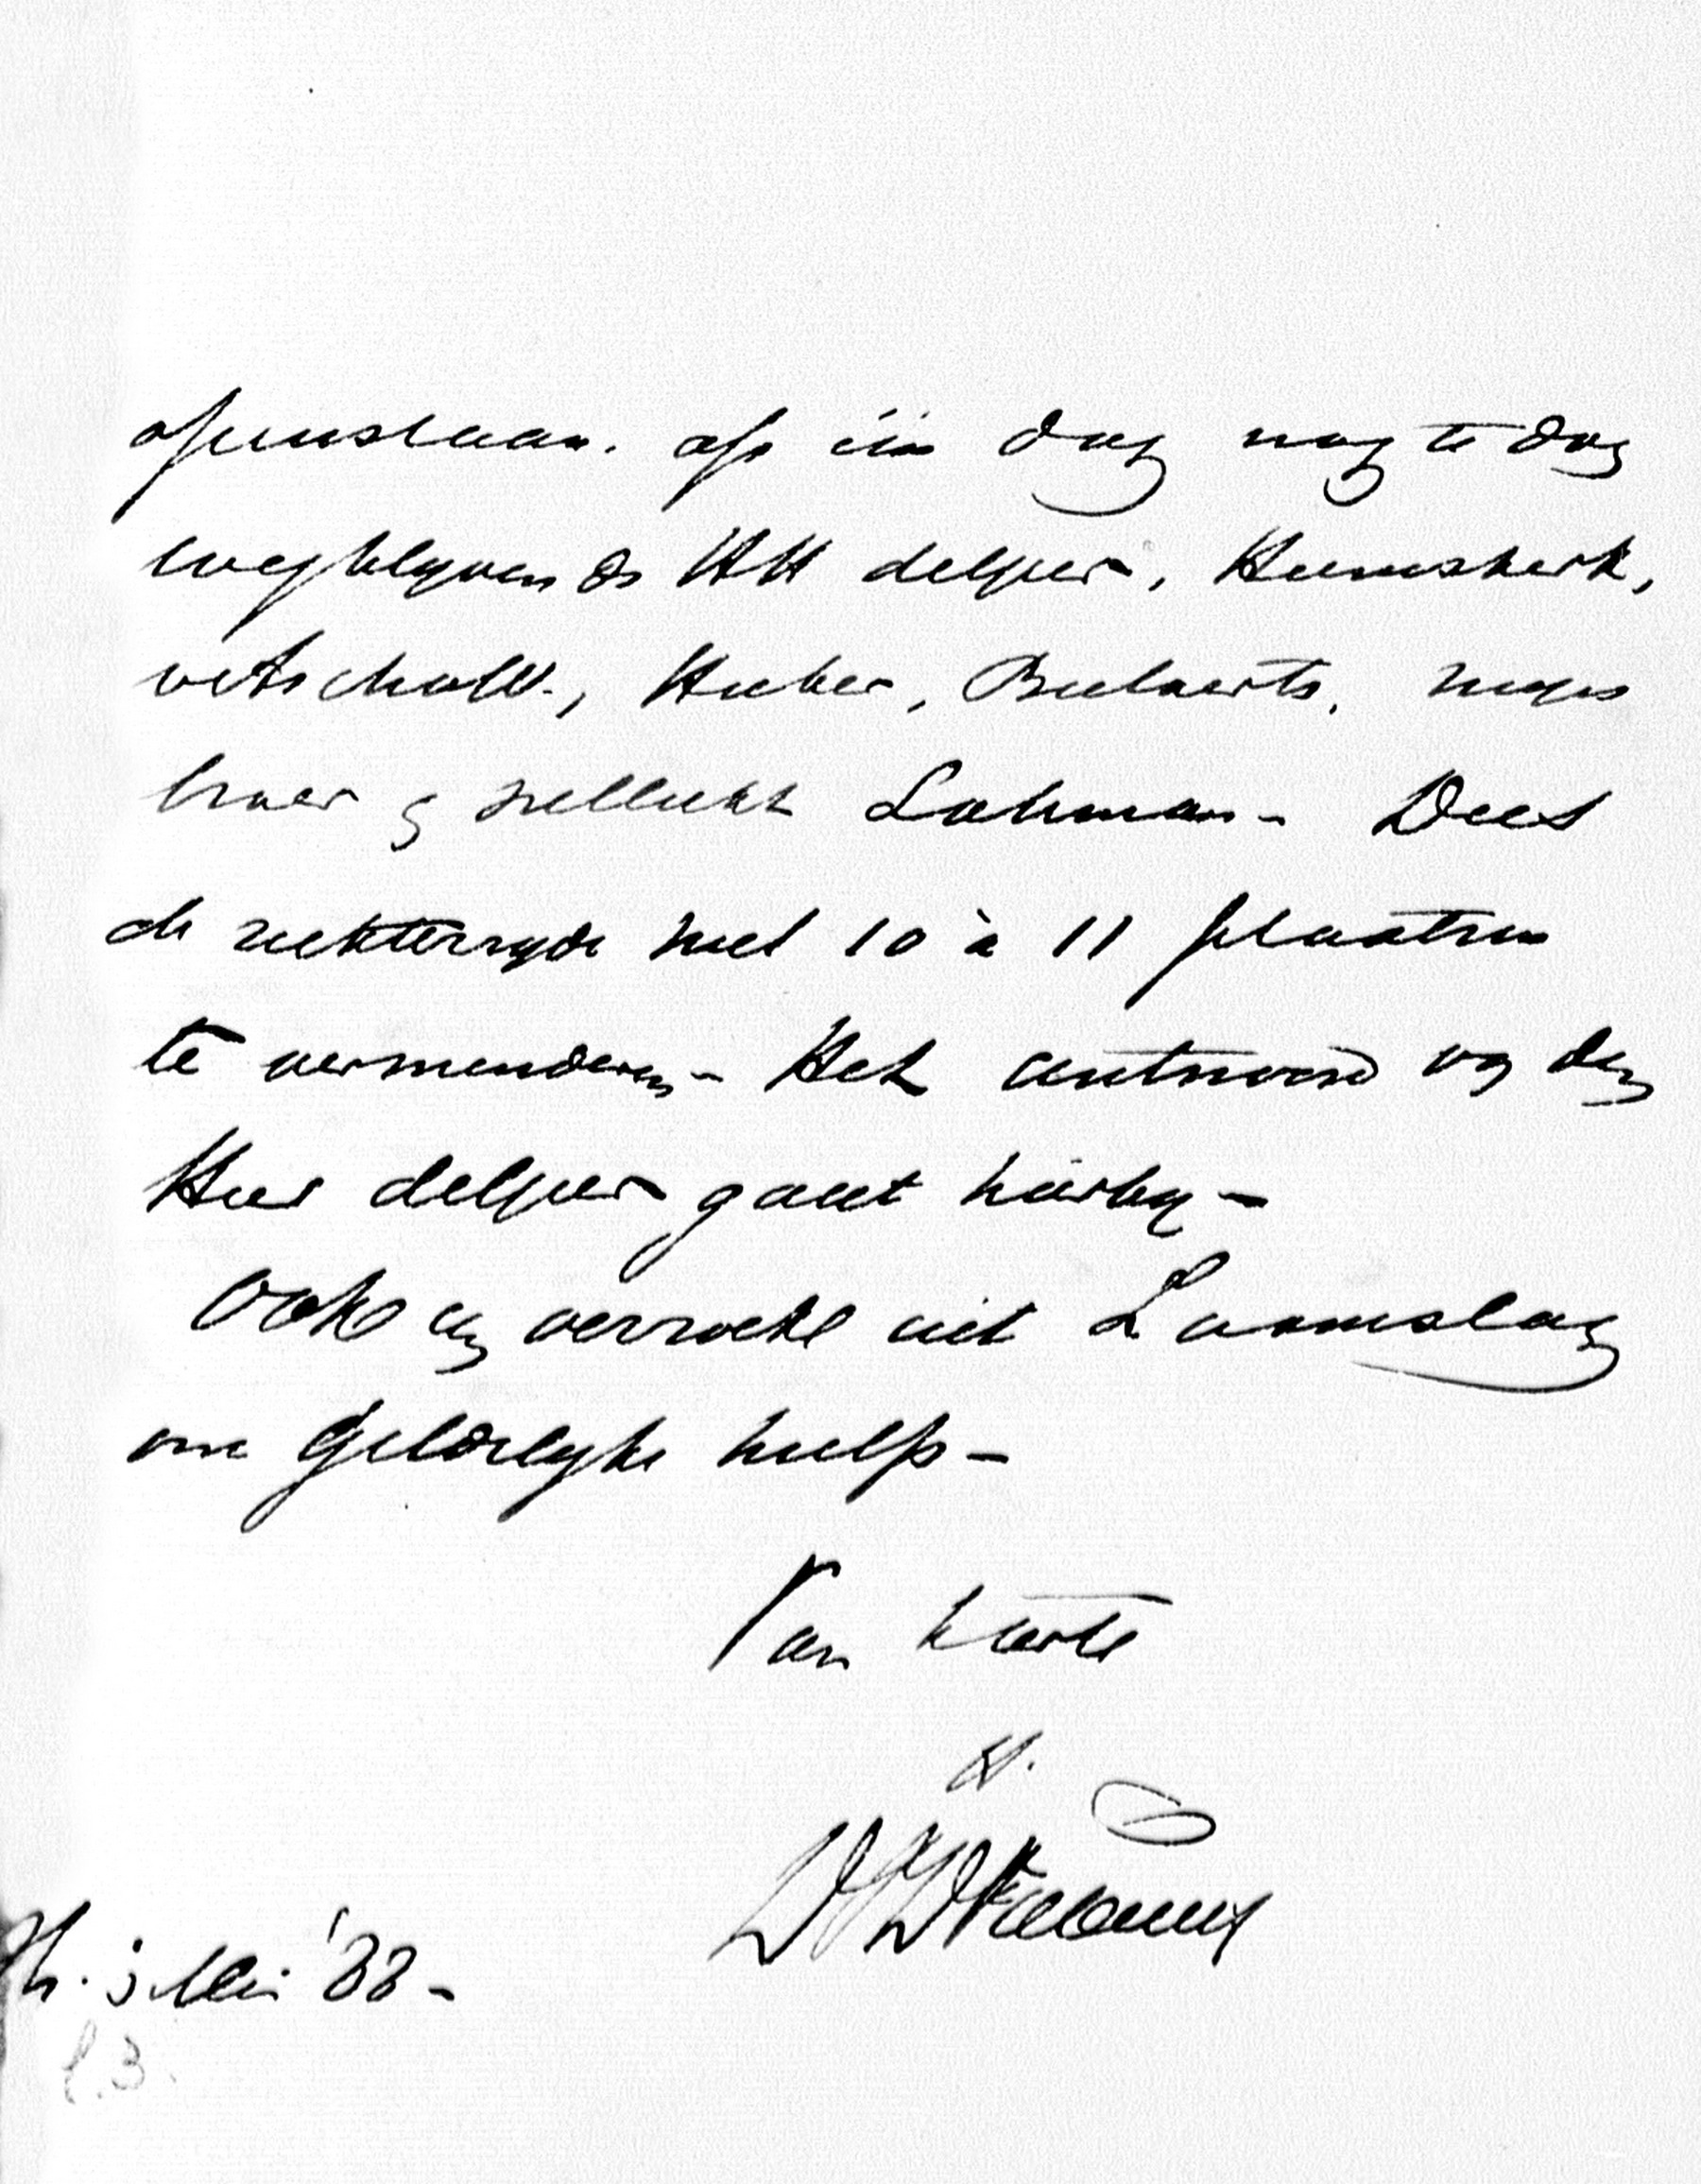 openstaan. Als één dag nog te dag
wegblyven de HH delprat, Heemskerk,
Huber, Beelaerts, myn
broer & wellicht Lohman - Dus
de rechterzyde met 10 à 11 plaatsen
te verminderen - Het antwoord van den
Heer delprat gaat hierby -
Ook een verzoek uit Zaamslag
om geldelyke hulp -
Van harte
tt.
H. 5 Mei '88 -
l.3.